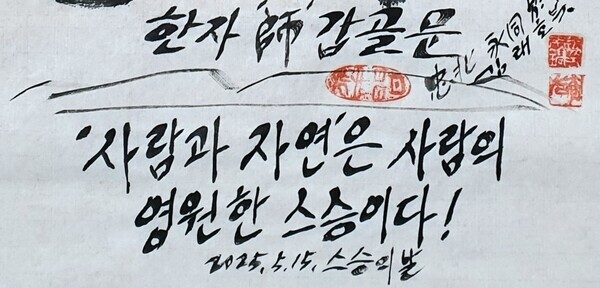 한자 '師' 갑골문
'사람과 자연'은 사람의
영원한 스승이다!
2025.5.15. 스승의날